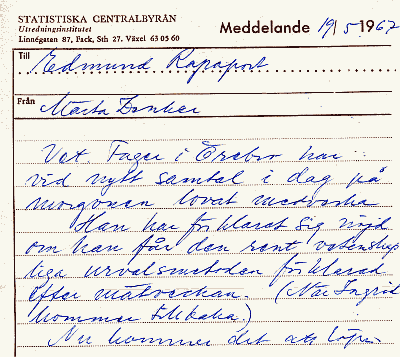 STATISTISKA CENTRALBYRÅN
Utredningsinstitutet
Linnégatan 87, Fack, Sth 27. Växel 63 05 60
Meddelande 19/5 1967
Till
Edmund Rapaport
Från
Marta
Vet. Fager i Örebro har
vid nytt samtal i dag på
morgonen lovat medverka
Han har förklarat sig nöjd
om han får den rent vetenskap
liga urvalsmetoden förklarad
efter mätveckan. (När Ingrid
kommer tillbaka)
Nu kommer det att löpa